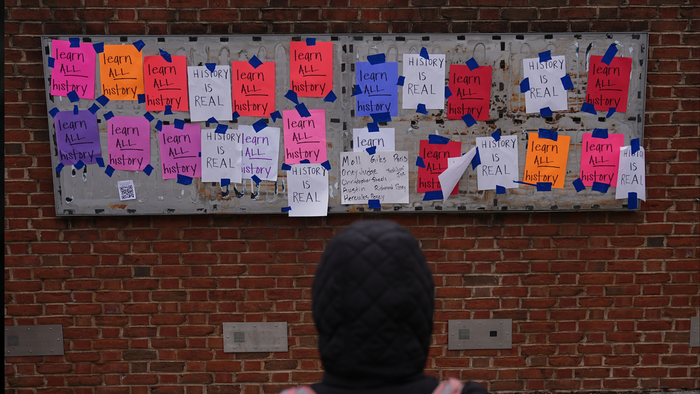 learn
ALL
history
learn
ALL
history
learn
ALL
history
HISTORY
IS
REAL
learn
ALL
history
learn
ALL
history
learn
ALL
history
HISTORY
IS
REAL
learn
ALL
history
HISTORY
IS
REAL
learn
ALL
history
learn
ALL
history
learn
ALL
history
learn
ALL
history
HISTORY
IS
REAL
learn
ALL
history
learn
ALL
history
HISTORY
IS
REAL
learn
Moll Giles Paris
Oney Judge
Christopher Sheels
Austin Richmond Posey
Hercules Posey
learn
ALL
history
HISTORY
IS
REAL
learn
ALL
history
learn
ALL
history
HISTORY
IS
REAL